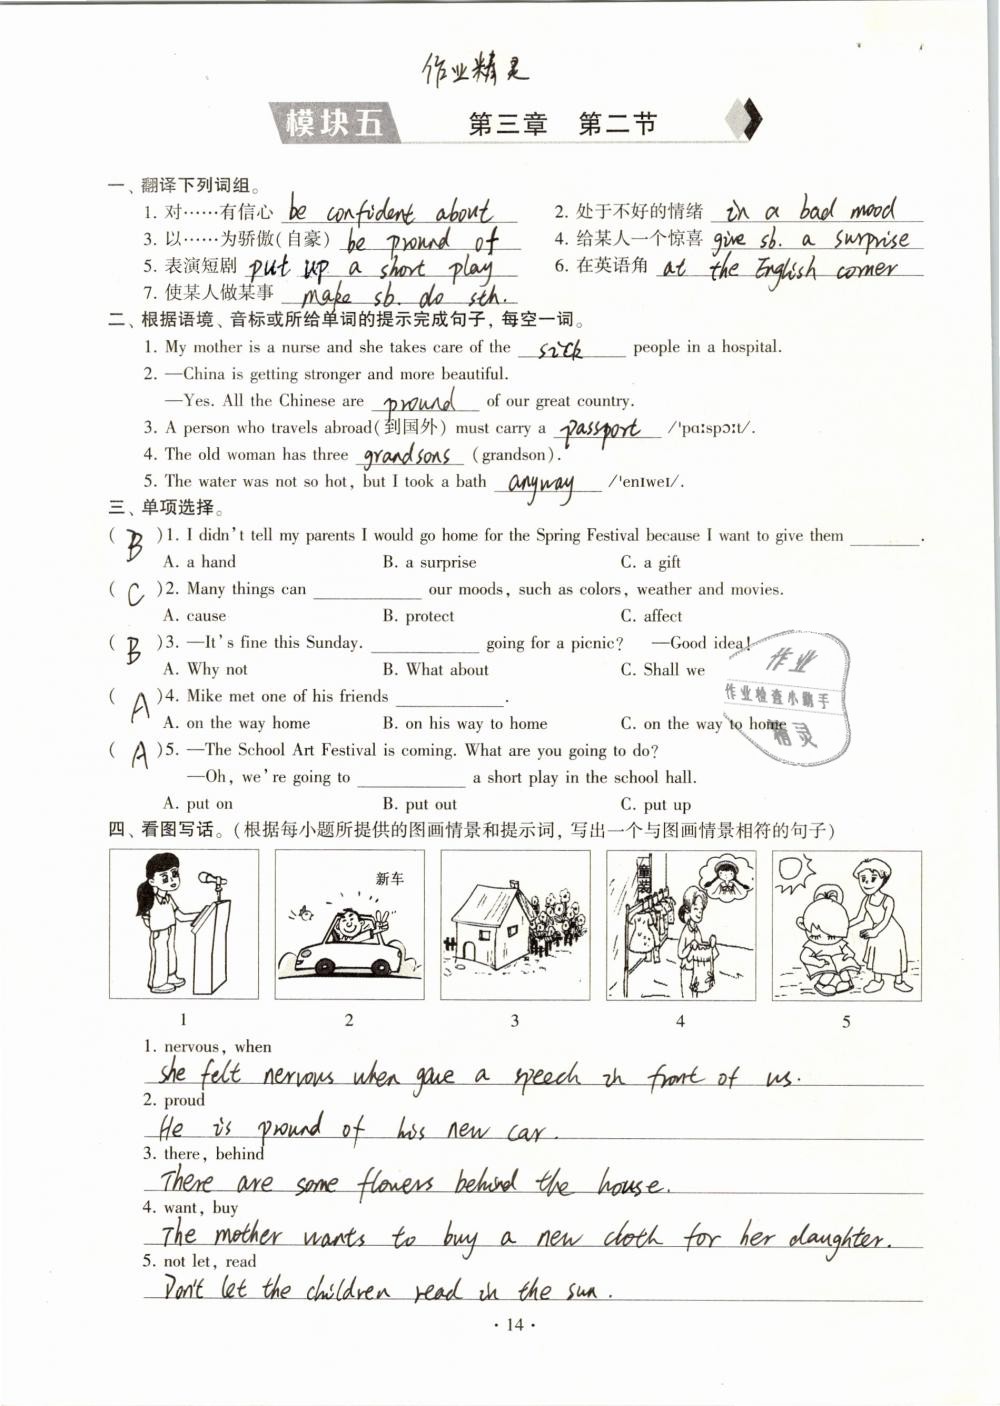 作业精灵
模块五 第三章 第二节
一、翻译下列词组。
1. 对……有信心 be confident about 2. 处于不好的情绪 in a bad mood
3. 以……为骄傲(自豪) be pround of 4. 给某人一个惊喜 give sb. a surprise
5. 表演短剧 put up a short play 6. 在英语角 at the English corner
7. 使某人做某事 make sb. do sth.
二、根据语境、音标或所给单词的提示完成句子，每空一词。
1. My mother is a nurse and she takes care of the sick people in a hospital.
2. —China is getting stronger and more beautiful.
—Yes. All the Chinese are pround of our great country.
3. A person who travels abroad(到国外) must carry a passport /'pɑːspɔːt/.
4. The old woman has three grandsons (grandson).
5. The water was not so hot, but I took a bath anyway /'enɪweɪ/.
三、单项选择。
( B )1. I didn't tell my parents I would go home for the Spring Festival because I want to give them ________.
A. a hand B. a surprise C. a gift
( C )2. Many things can ________ our moods, such as colors, weather and movies.
A. cause B. protect C. affect
( B )3. —It's fine this Sunday. ________ going for a picnic? —Good idea!
A. Why not B. What about C. Shall we
( A )4. Mike met one of his friends ________.
A. on the way home B. on his way to home C. on the way to home
( A )5. —The School Art Festival is coming. What are you going to do?
—Oh, we're going to ________ a short play in the school hall.
A. put on B. put out C. put up
作业
作业检查小助手
精灵
四、看图写话。(根据每小题所提供的图画情景和提示词，写出一个与图画情景相符的句子)
新车
童装
1 2 3 4 5
1. nervous, when
she felt nervous when gave a speech in front of us.
2. proud
He is pround of his new car.
3. there, behind
There are some flowers behind the house.
4. want, buy
The mother wants to buy a new cloth for her daughter.
5. not let, read
Don't let the children read in the sun.
· 14 ·